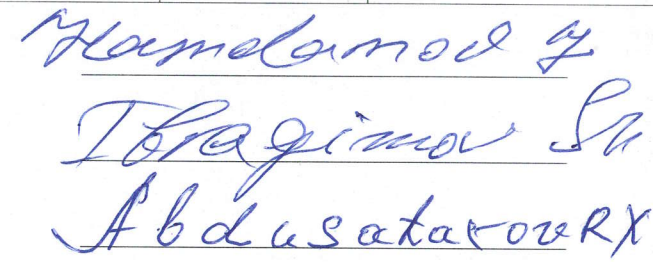 Hamdamov J
Ibragimov Sh
Abdusatarov RX